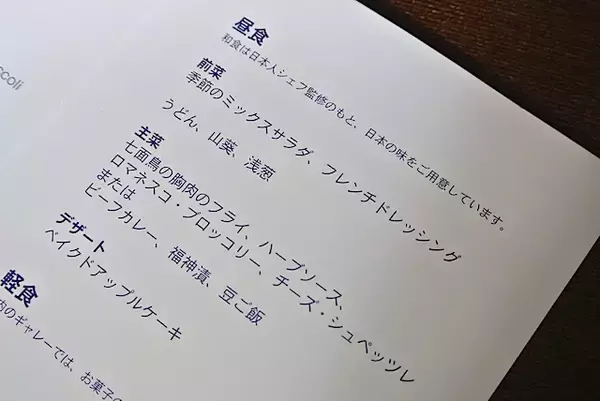 occoli
昼食
和食は日本人シェフ監修のもと、日本の味をご用意しています。
前菜
季節のミックスサラダ、フレンチドレッシング
うどん、山葵、浅葱
主菜
七面鳥の胸肉のフライ、ハーブソース、
ロマネスコ・ブロッコリー、チーズ・シュペッツレ
または
ビーフカレー、福神漬、豆ご飯
デザート
ベイクドアップルケーキ
軽食
内のギャレーでは、お菓子の